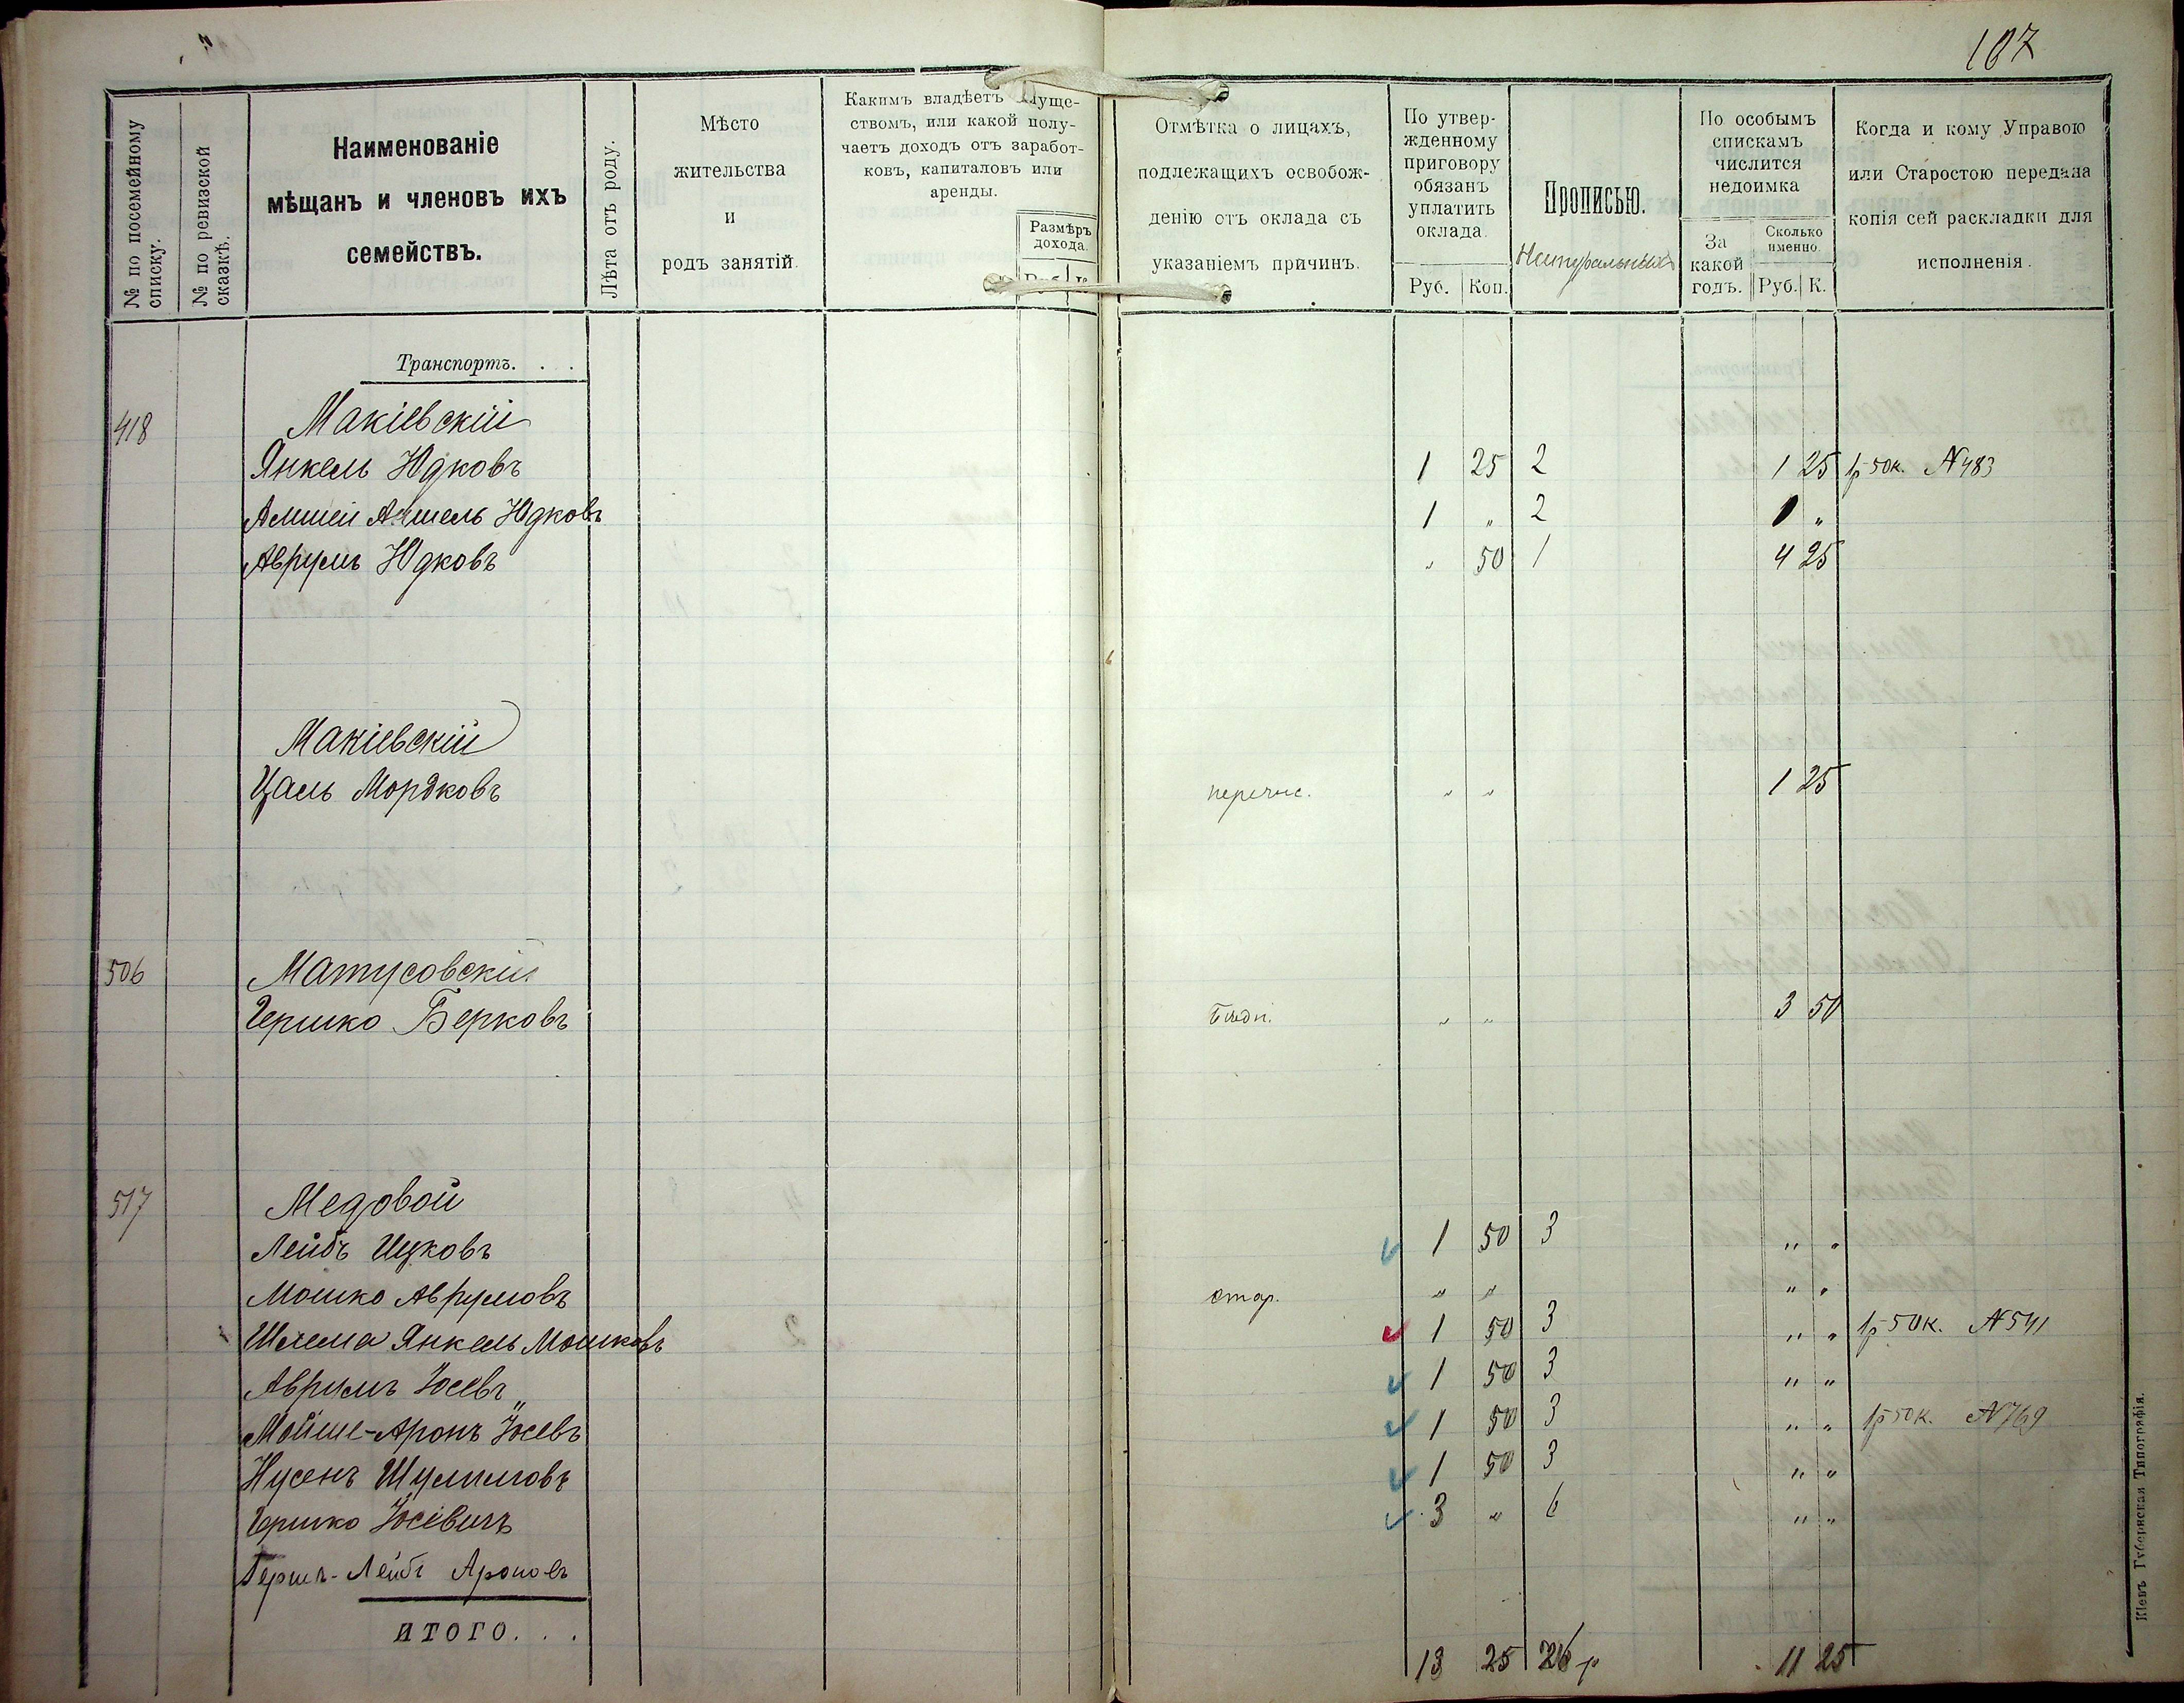 107
№ по посемейному списку.
№ по ревизской сказкѣ.
Наименованіе
мѣщанъ и членовъ ихъ
семействъ.
Лѣта отъ роду.
Мѣсто
жительства
и
родъ занятій.
Какимъ владѣетъ муще-
ствомъ, или какой полу-
чаетъ доходъ отъ заработ-
ковъ, капиталовъ или
аренды.
Размѣръ
дохода.
Отмѣтка о лицахъ,
подлежащихъ освобож-
денію отъ оклада съ
указаніемъ причинъ.
По утвер-
жденному
приговору
обязанъ
уплатить
оклада.
Руб. Коп.
Прописью.
Натуральныхъ
По особымъ
спискамъ
числится
недоимка
За
какой
годъ.
Сколько
именно.
Руб. К.
Когда и кому Управою
или Старостою передана
копія сей раскладки для
исполненія.
Транспортъ. . .
418 Макіевскій
Янкель Юдковъ 1 25 2 1 25 1р 50к. № 483
Аншель Юдковъ 1 „ 2 „
Аврумъ Юдковъ „ 50 1 4 25
Макіевскій
Цаль Мордковъ перечис. „ „ 1 25
506 Матусовскій
Гершко Берковъ бѣдн. „ „ 3 50
517 Медовой
Лейбъ Ицковъ 1 50 3 „ „
Мошко Аврумовъ стар. „ „ „ „
Шлема Янкель Мошковъ 1 50 3 „ „ 1р 50к. № 541
Аврумъ Іосевъ 1 50 3 „ „
Мойше-Аронъ Іосевъ 1 50 3 „ „ 1р 50к. № 769
Нусенъ Шулимовъ 1 50 3 „ „
Гершко Іосевичъ 3 „ 6 „ „
Гершъ-Лейбъ Ароновъ
ИТОГО. . . 13 25 26 р 11 25
Кіевъ Губернская Типографія.